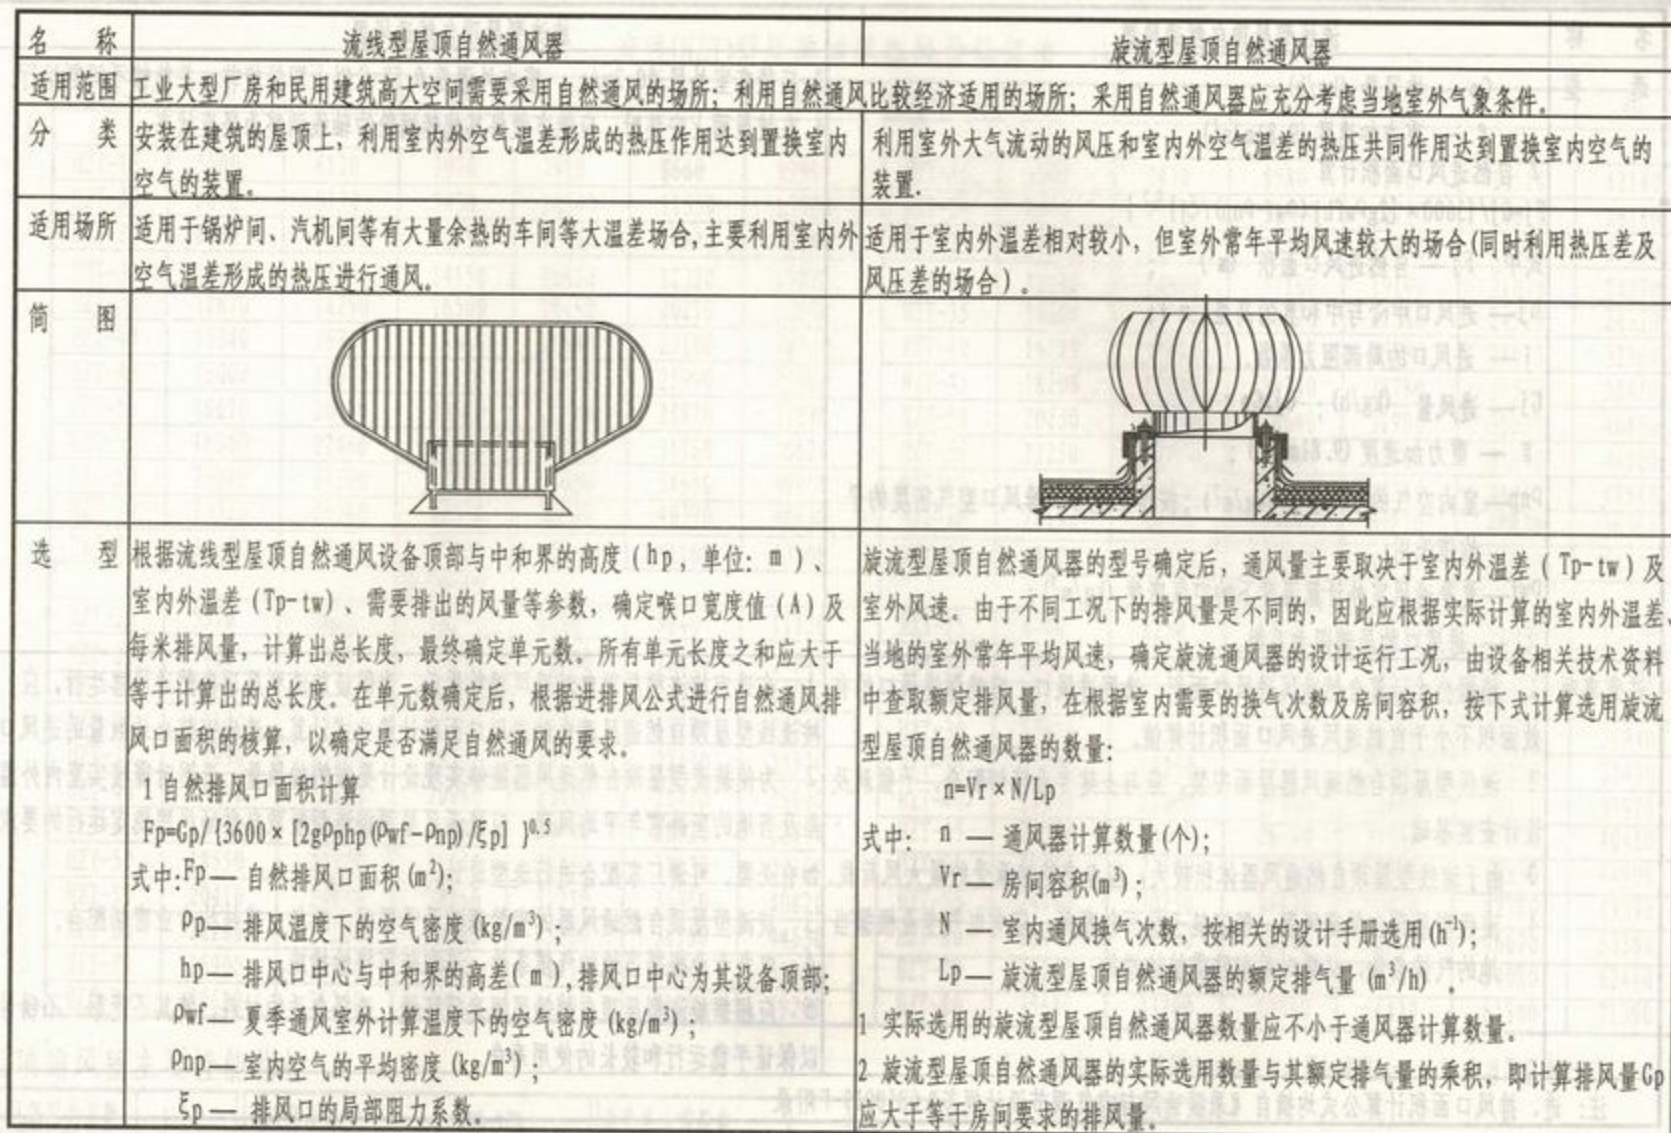 名 称
流线型屋顶自然通风器
旋流型屋顶自然通风器
适用范围
工业大型厂房和民用建筑高大空间需要采用自然通风的场所；利用自然通风比较经济适用的场所；采用自然通风器应充分考虑当地室外气象条件。
分 类
安装在建筑的屋顶上，利用室内外空气温差形成的热压作用达到置换室内
空气的装置。
利用室外大气流动的风压和室内外空气温差的热压共同作用达到置换室内空气的
装置.
适用场所
适用于锅炉间、汽机间等有大量余热的车间等大温差场合,主要利用室内外
空气温差形成的热压进行通风。
适用于室内外温差相对较小，但室外常年平均风速较大的场合(同时利用热压差及
风压差的场合）。
简 图
选 型
根据流线型屋顶自然通风设备顶部与中和界的高度（hp，单位：m）、
室内外温差（Tp-tw）、需要排出的风量等参数，确定喉口宽度值（A）及
每米排风量，计算出总长度，最终确定单元数。所有单元长度之和应大于
等于计算出的总长度。在单元数确定后，根据进排风公式进行自然通风排
风口面积的核算，以确定是否满足自然通风的要求。
1 自然排风口面积计算
Fp=Gp/{3600×[2gρphp(ρwf-ρnp)/ξp] }⁰·⁵
式中:Fp— 自然排风口面积(m²);
ρp— 排风温度下的空气密度(kg/m³)；
hp— 排风口中心与中和界的高差(m),排风口中心为其设备顶部;
ρwf— 夏季通风室外计算温度下的空气密度(kg/m³)；
ρnp— 室内空气的平均密度(kg/m³)；
ξp— 排风口的局部阻力系数。
旋流型屋顶自然通风器的型号确定后，通风量主要取决于室内外温差（Tp-tw）及
室外风速。由于不同工况下的排风量是不同的，因此应根据实际计算的室内外温差、
当地的室外常年平均风速，确定旋流通风器的设计运行工况，由设备相关技术资料
中查取额定排风量，在根据室内需要的换气次数及房间容积，按下式计算选用旋流
型屋顶自然通风器的数量:
n=Vr×N/Lp
式中: n — 通风器计算数量(个);
Vr— 房间容积(m³);
N — 室内通风换气次数，按相关的设计手册选用(h⁻¹);
Lp— 旋流型屋顶自然通风器的额定排气量(m³/h) .
1 实际选用的旋流型屋顶自然通风器数量应不小于通风器计算数量。
2 旋流型屋顶自然通风器的实际选用数量与其额定排气量的乘积，即计算排风量Gp
应大于等于房间要求的排风量。